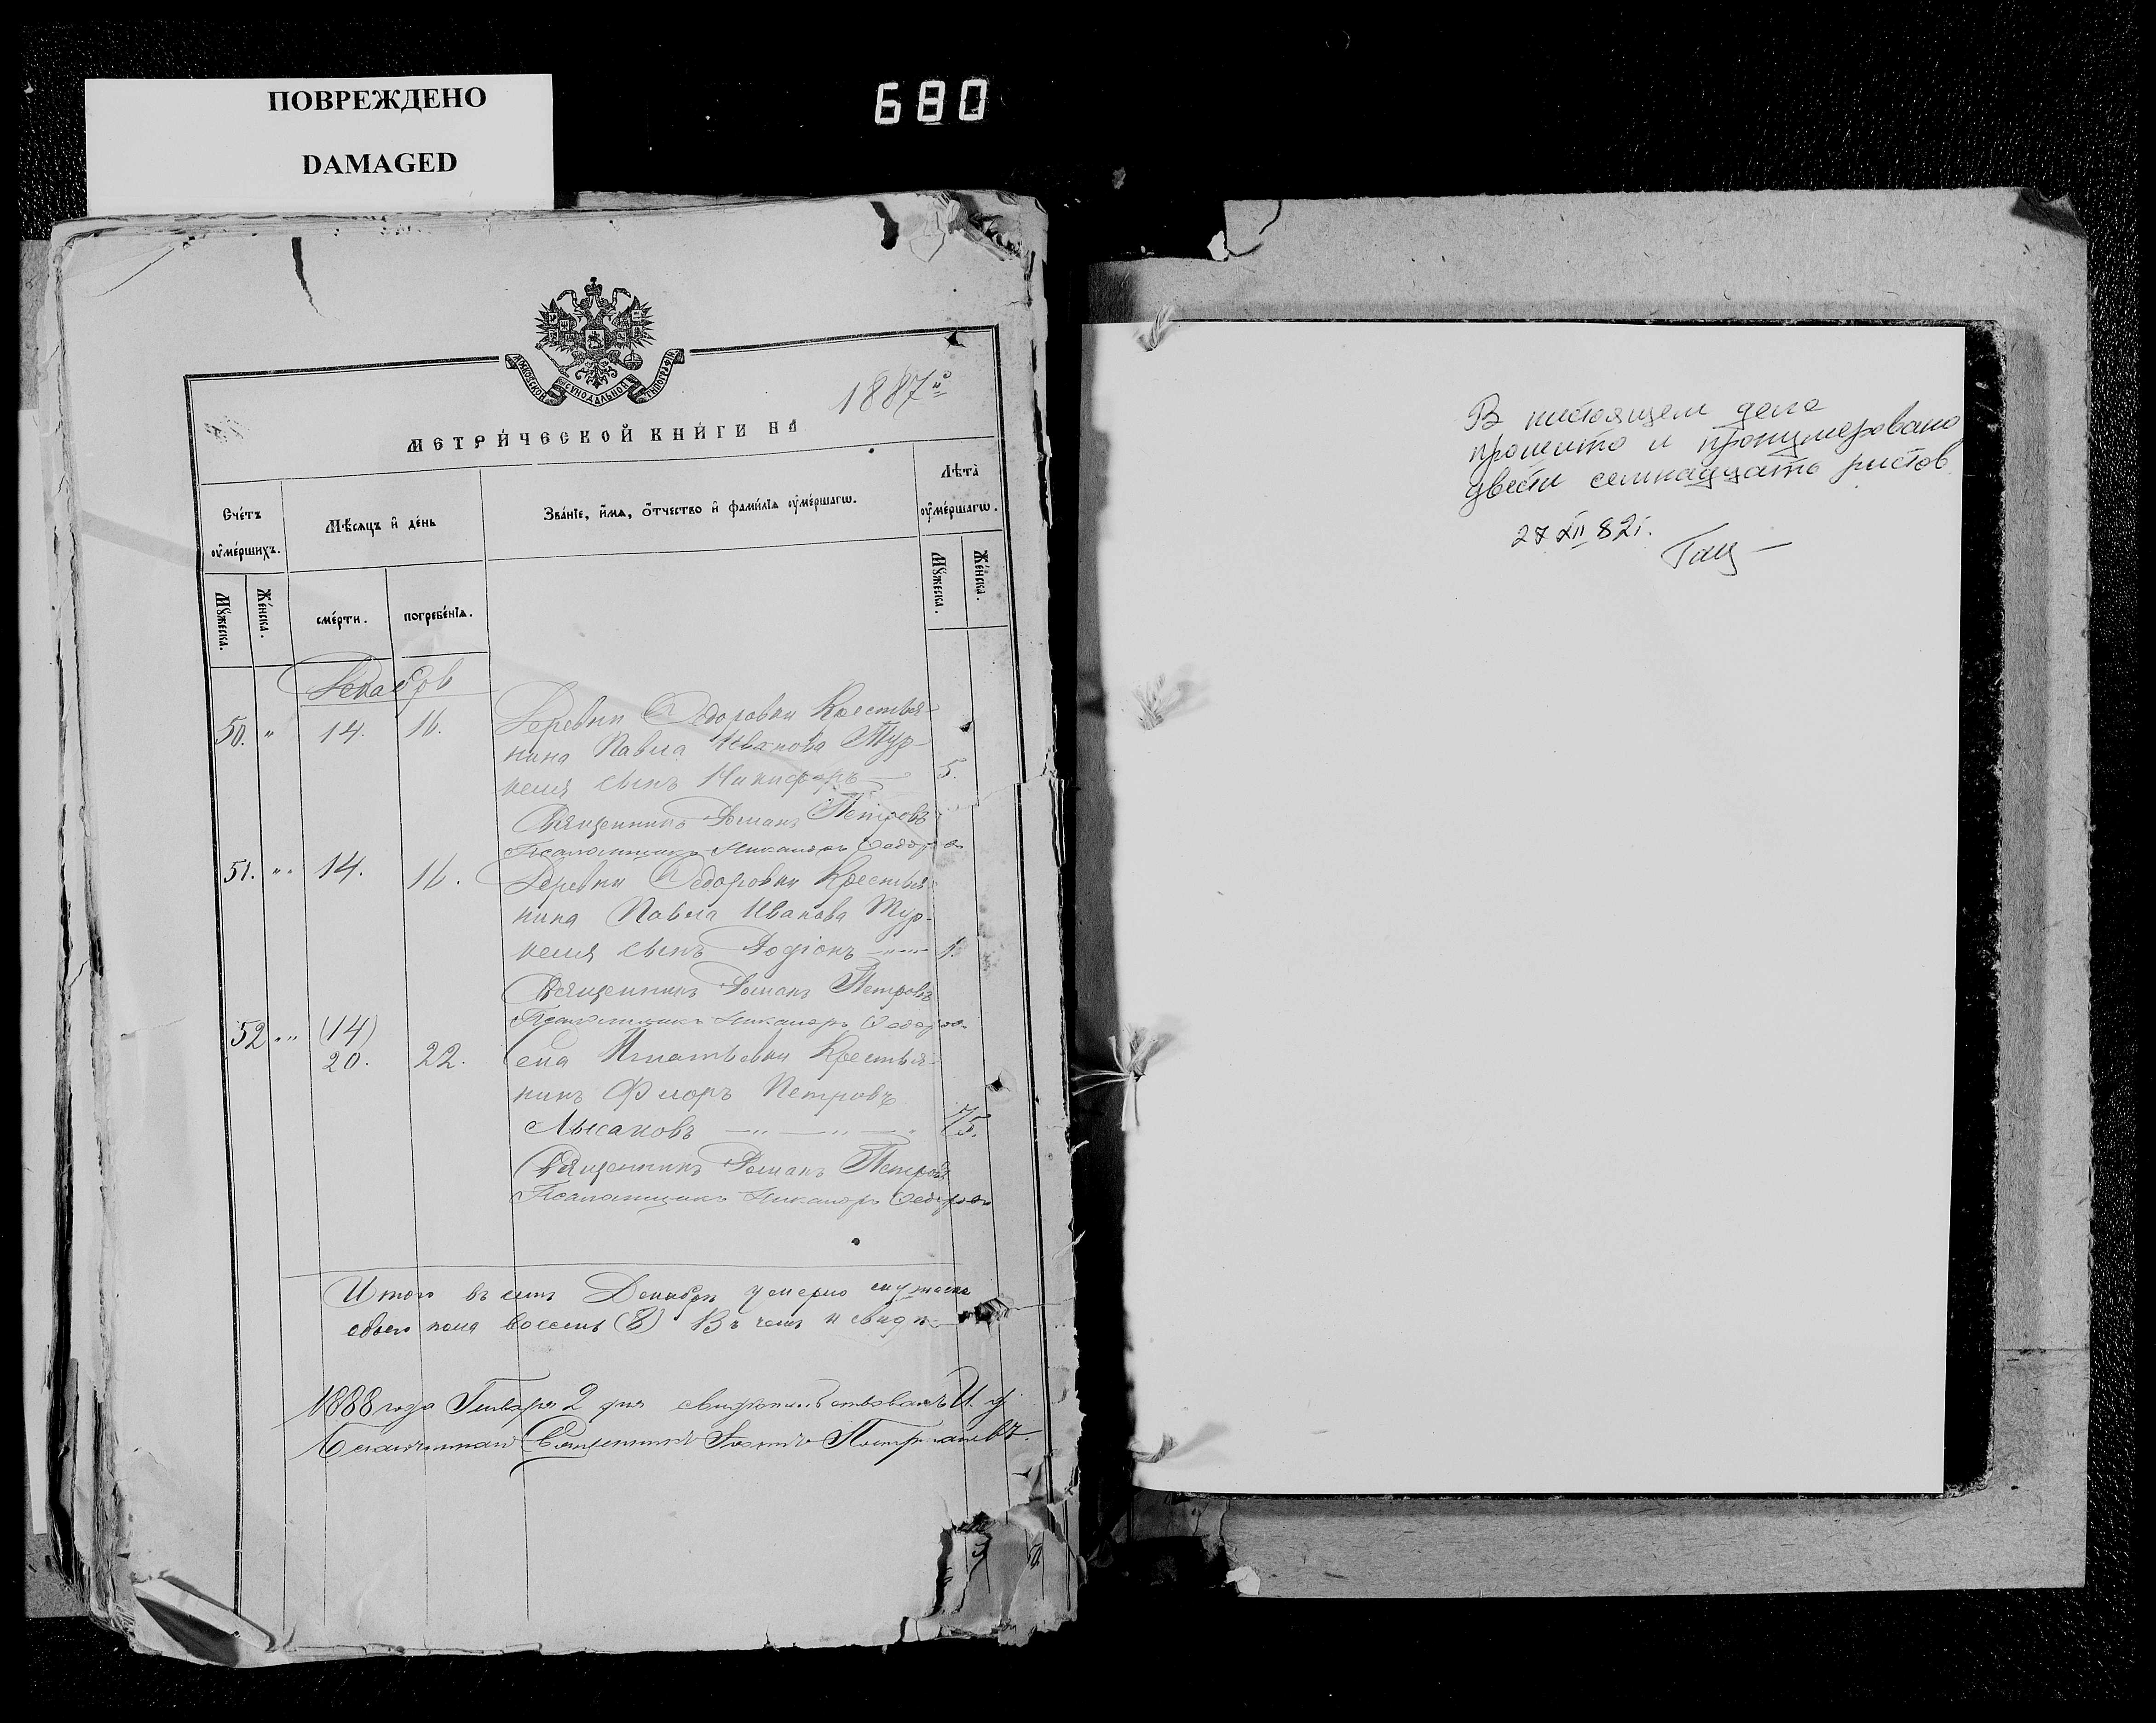 ПОВРЕЖДЕНО
DAMAGED
680
МОСКОВСКОЙ СѴНОДАЛЬНОЙ ТИПОГРАФІИ
МЕТРИ́ЧЕСКОЙ КНИ́ГИ НА 1887й
Сче́тъ ᲂу҆ме́ршихъ.
Мѣ́сяцъ и҆ де́нь
Зва́нїе, и҆́мѧ, ѻ҆́тчество и҆ фами́лїѧ ᲂу҆ме́ршагѡ.
Лѣ́та ᲂу҆ме́ршагѡ.
Мꙋ́жеска. Же́нска. сме́рти. погребе́нїѧ. Мꙋ́жеска. Же́нска.
Декабрь
50. " 14. 16. Деревни Ѳедоровки Крестья-
нина Павла Иванова Тур-
келя сынъ Никифоръ — 5.
Священникъ Романъ Петровъ
Псаломщикъ Никаноръ Ѳедоров
51. " " 14. 16. Деревни Ѳедоровки Крестья-
нина Павла Иванова Тур-
келя сынъ Родіонъ 1.
Священникъ Романъ Петровъ
Псаломщикъ Никаноръ Ѳедоров
52 " " (14)
20. 22. Села Игнатьевки Крестья-
нинъ Флоръ Петровъ
Лысаковъ — " — " — " 75.
Священникъ Романъ Петровъ
Псаломщикъ Никаноръ Ѳедоров
Итого въ семъ Декабрѣ умерло мужеска
пола восемь (8) Въ чемъ и свидѣ-
1888 года Генваря 2 дня свидѣтельствовалъ И. д.
Благочиннаго Священникъ
В настоящем деле
прошито и пронумеровано
двести семнадцать листов.
27 XII 82г.